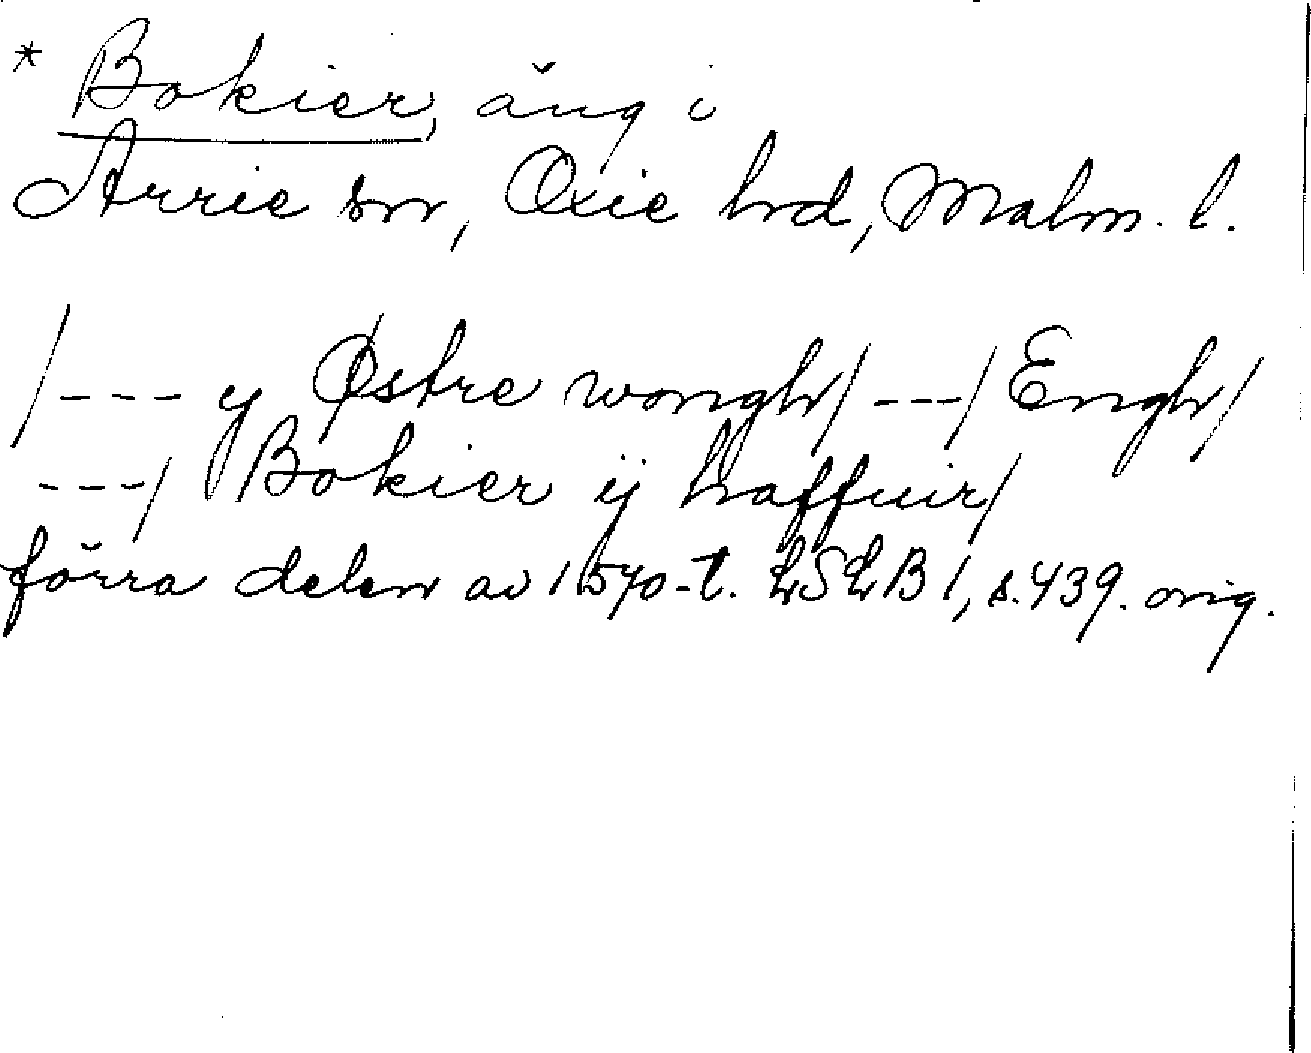 * Bokier, äng i
Arrie sn, Oxie hrd, Malm. l.
/--- y Østre wongh/ ---/ Engh/
---/ Bokier ij haffuir/
förra delen av 1570-t. LSLB 1, s. 439. orig.